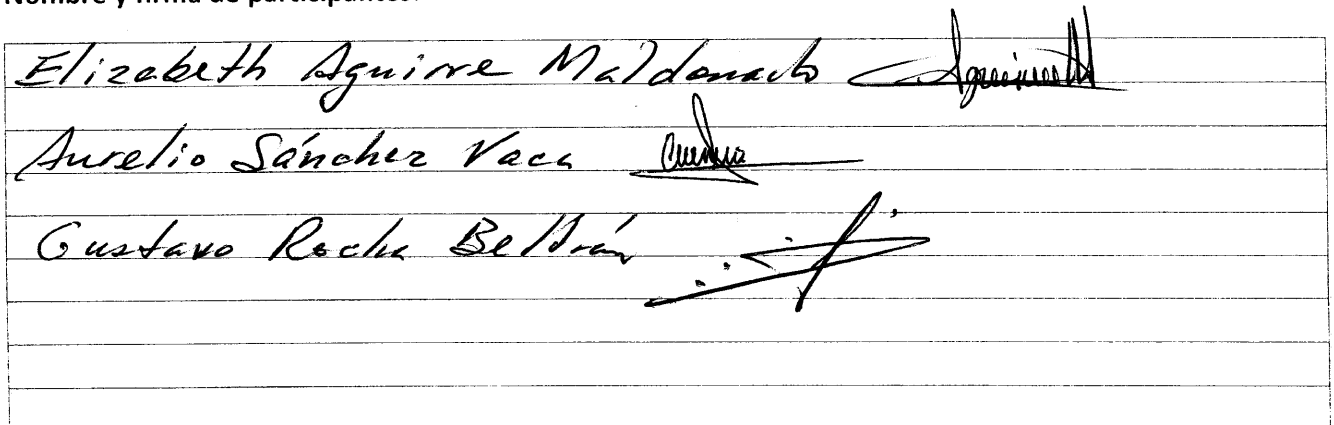 Nombre y firma de participantes:
Elizabeth Aguirre Maldonado
Aurelio Sánchez Vaca
Gustavo Rocha Beltrán